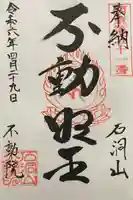 奉納
石洞山
不動明王
令和六年四月二十九日
不動院